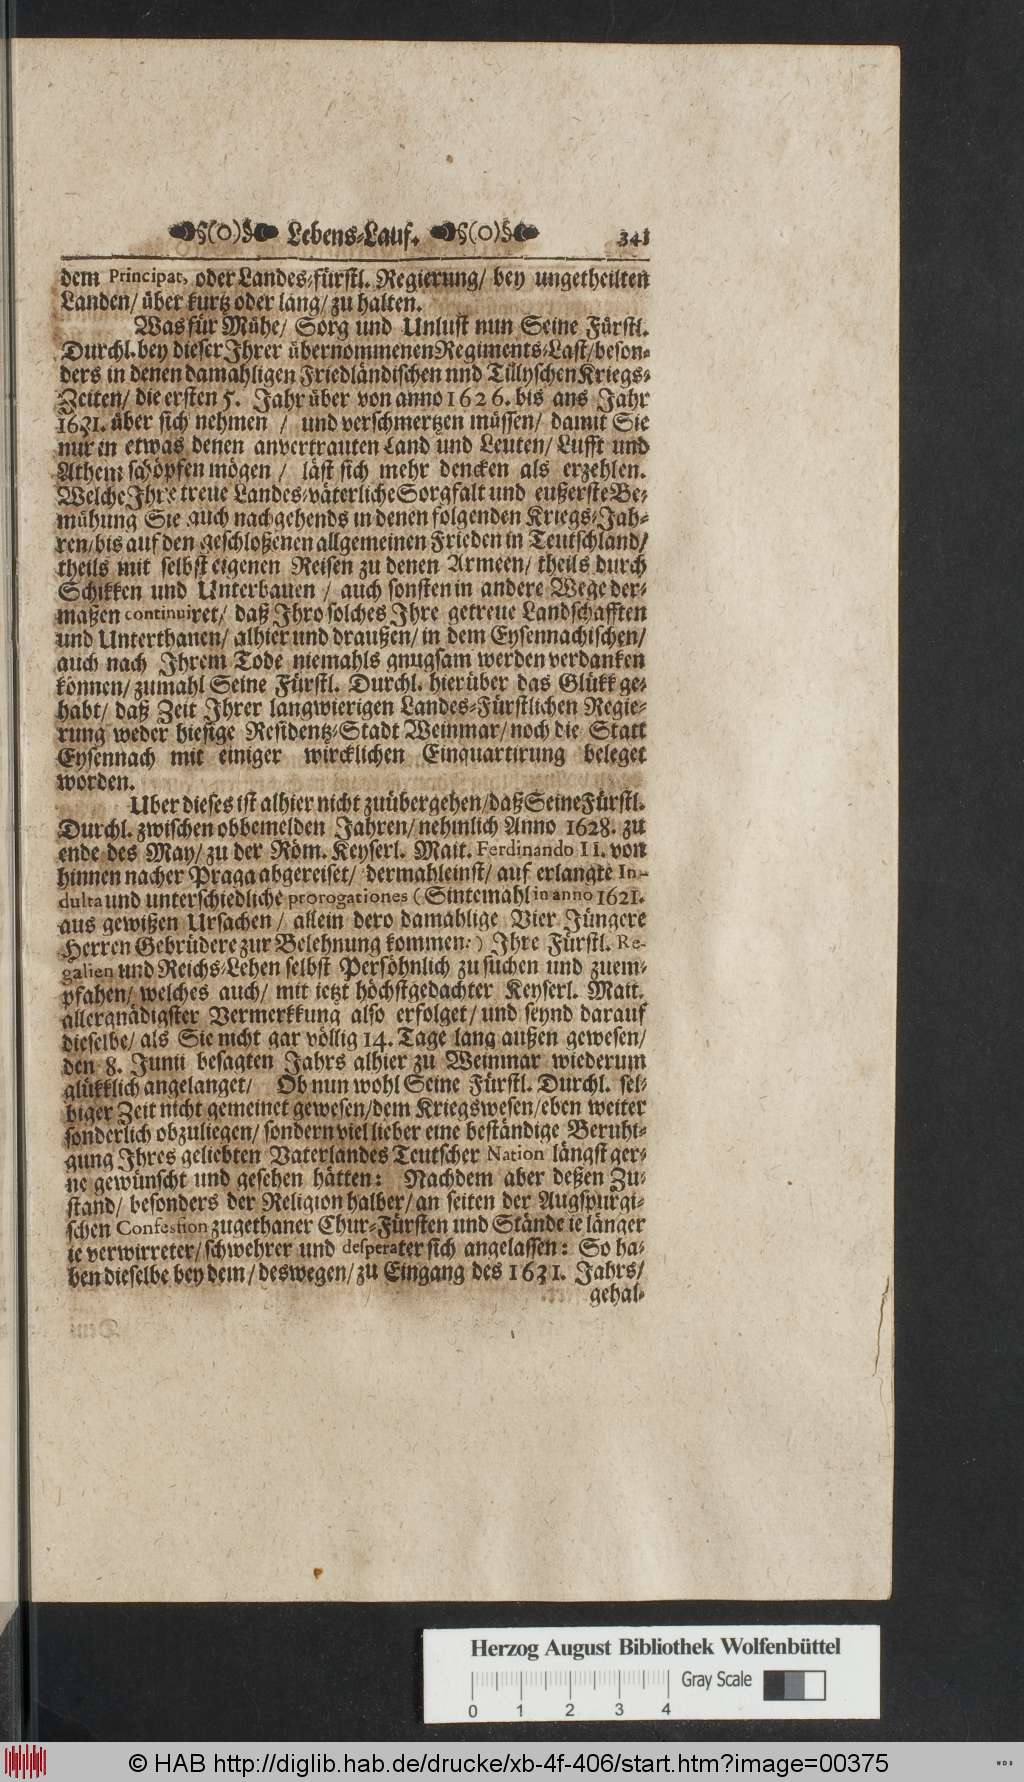 §(o)§ Lebens-Lauf. §(o)§ 341
dem Principat, oder Landes-fürstl. Regierung/ bey ungetheilten
Landen/ über kurtz oder lang/ zu halten.
Was für Mühe/ Sorg und Unlust nun Seine Fürstl.
Durchl. bey dieser Ihrer übernommenen Regiments-Last/ beson-
ders in denen damahligen Friedländischen nnd Tüllyschen Kriegs-
Zeiten/ die ersten 5. Jahr über von anno 1626. bis ans Jahr
1631. über sich nehmen / und verschmertzen müssen/ damit Sie
nur in etwas denen anvertrauten Land und Leuten/ Lufft und
Athem schöpfen mögen / läst sich mehr dencken als erzehlen.
Welche Ihre treue Landes-väterliche Sorgfalt und eußerste Be-
mühung Sie auch nachgehends in denen folgenden Kriegs-Jah-
ren/ bis auf den geschloßenen allgemeinen Frieden in Teutschland/
theils mit selbst eigenen Reisen zu denen Armeen/ theils durch
Schikken und Unterbauen / auch sonsten in andere Wege der-
maßen continuiret/ daß Ihro solches Ihre getreue Landschafften
und Unterthanen/ alhier und draußen/ in dem Eysennachischen/
auch nach Ihrem Tode niemahls gnugsam werden verdanken
können/ zumahl Seine Fürstl. Durchl. hierüber das Glükk ge-
habt/ daß Zeit Ihrer langwierigen Landes-Fürstlichen Regie-
rung weder hiesige Residentz-Stadt Weinmar/ noch die Statt
Eysennach mit einiger wircklichen Einquartirung beleget
worden.
Uber dieses ist alhier nicht zuübergehen/ daß Seine Fürstl.
Durchl. zwischen obbemelden Jahren/ nehmlich Anno 1628. zu
ende des May/ zu der Röm. Keyserl. Mait. Ferdinando II. von
hinnen nacher Praga abgereiset/ dermahleinst/ auf erlangte In-
dulta und unterschiedliche prorogationes (Sintemahl in anno 1621.
aus gewißen Ursachen / allein dero damahlige Vier Jüngere
Herren Gebrüdere zur Belehnung kommen:) Ihre Fürstl. Re-
galien und Reichs-Lehen selbst Persöhnlich zu suchen und zuem-
pfahen/ welches auch/ mit ietzt höchstgedachter Keyserl. Mait.
allergnädigster Vermerkkung also erfolget/ und seynd darauf
dieselbe/ als Sie nicht gar völlig 14. Tage lang außen gewesen/
den 8. Junii besagten Jahrs alhier zu Weinmar wiederum
glükklich angelanget/ Ob nun wohl Seine Fürstl. Durchl. sel-
biger Zeit nicht gemeinet gewesen/ dem Kriegswesen/ eben weiter
sonderlich obzuliegen/ sondern viel lieber eine beständige Beruhi-
gung Ihres geliebten Vaterlandes Teutscher Nation längst ger-
ne gewünscht und gesehen hätten: Nachdem aber deßen Zu-
stand/ besonders der Religion halber/ an seiten der Augspurgi-
schen Confession zugethaner Chur-Fürsten und Stände ie länger
ie verwirreter/ schwehrer und desperater sich angelassen: So ha-
ben dieselbe bey dem/ deswegen/ zu Eingang des 1631. Jahrs/
gehal-
Herzog August Bibliothek Wolfenbüttel
Gray Scale
0 1 2 3 4
© HAB http://diglib.hab.de/drucke/xb-4f-406/start.htm?image=00375